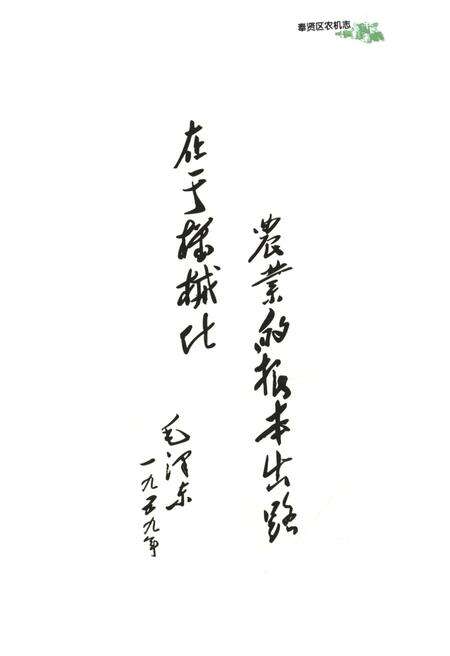 奉贤区农机志
農業的根本出路
在于機械化
毛泽东
一九五九年